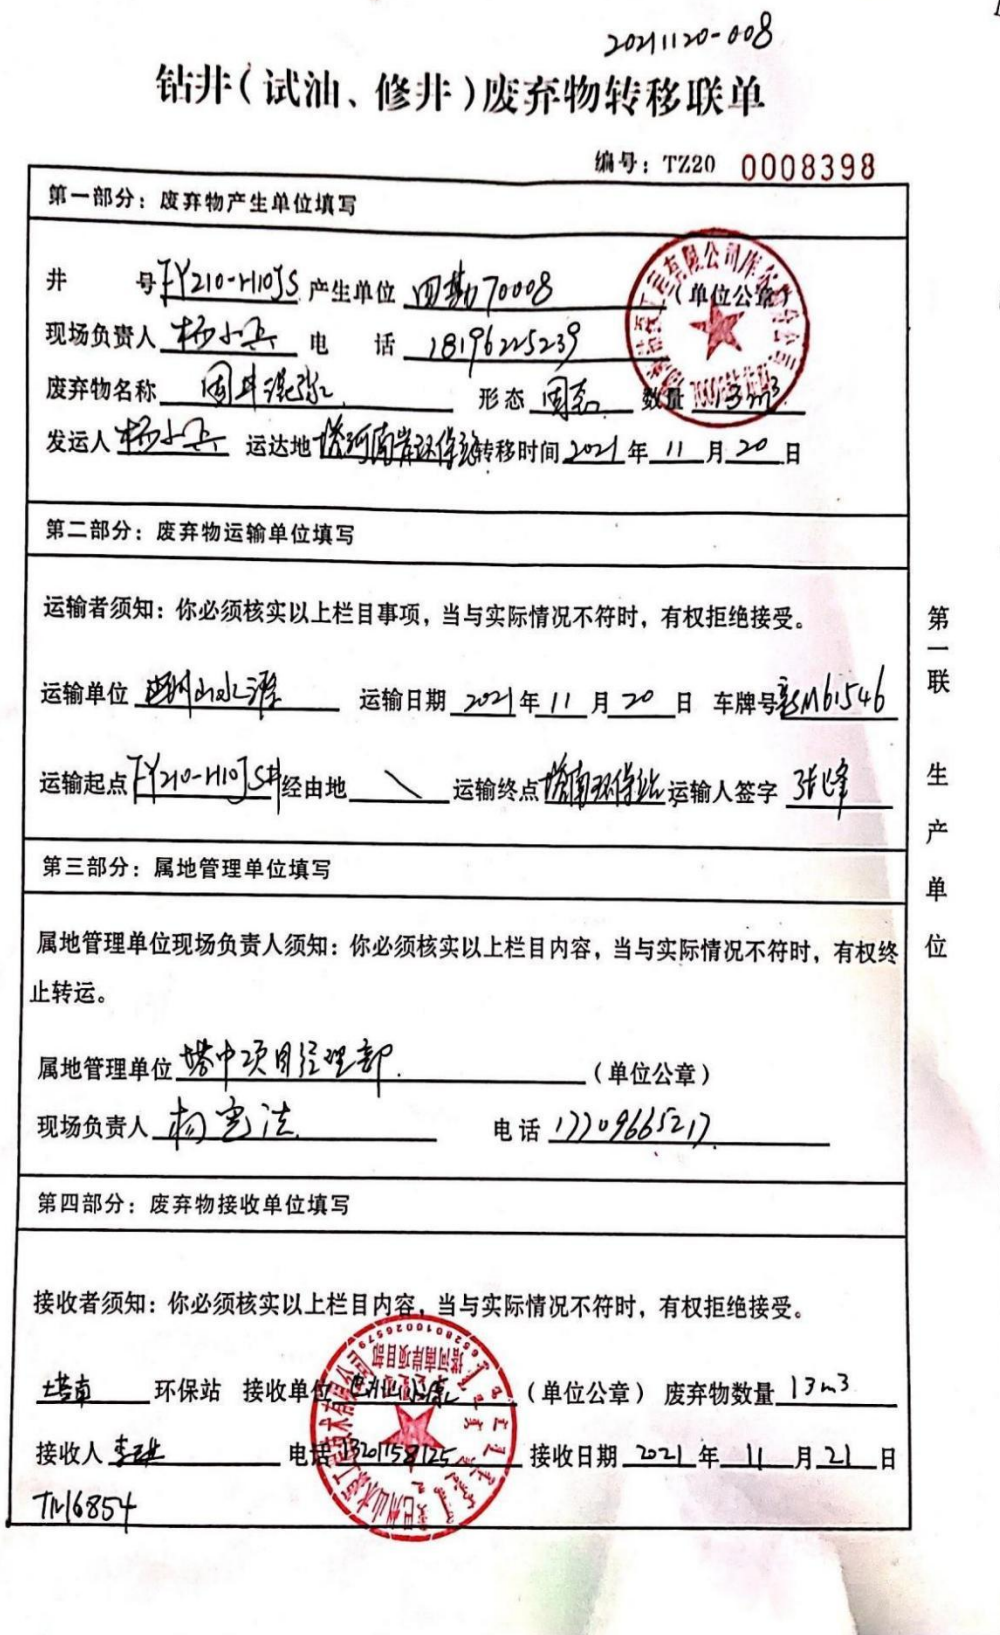 2021120-008
钻井（试油、修井）废弃物转移联单
编号：TZ20 0008398
第一部分：废弃物产生单位填写
井 号 FY210-H10JS 产生单位 四勘70008 （单位公章）
现场负责人 杨小兵 电 话 18196225239
废弃物名称 固井混浆 形态 固态 数量 13m³
发运人 杨小兵 运达地 塔河南岸环保站 转移时间 2021 年 11 月 20 日
第二部分：废弃物运输单位填写
运输者须知：你必须核实以上栏目事项，当与实际情况不符时，有权拒绝接受。
运输单位 运输日期 2021 年 11 月 20 日 车牌号 新M61546
运输起点 FY210-H10JS井 经由地 运输终点 塔南环保站 运输人签字 张峰
第三部分：属地管理单位填写
属地管理单位现场负责人须知：你必须核实以上栏目内容，当与实际情况不符时，有权终
止转运。
属地管理单位 塔中项目经理部. （单位公章）
现场负责人 杨宪法 电话 17709665217
第四部分：废弃物接收单位填写
接收者须知：你必须核实以上栏目内容，当与实际情况不符时，有权拒绝接受。
塔南 环保站 接收单位 巴州山水源 （单位公章） 废弃物数量 13m3
接收人 电话 13201158125 接收日期 2021 年 11 月 21 日
TM6854
第一联 生产单位
塔河南岸项目部
6528010026579